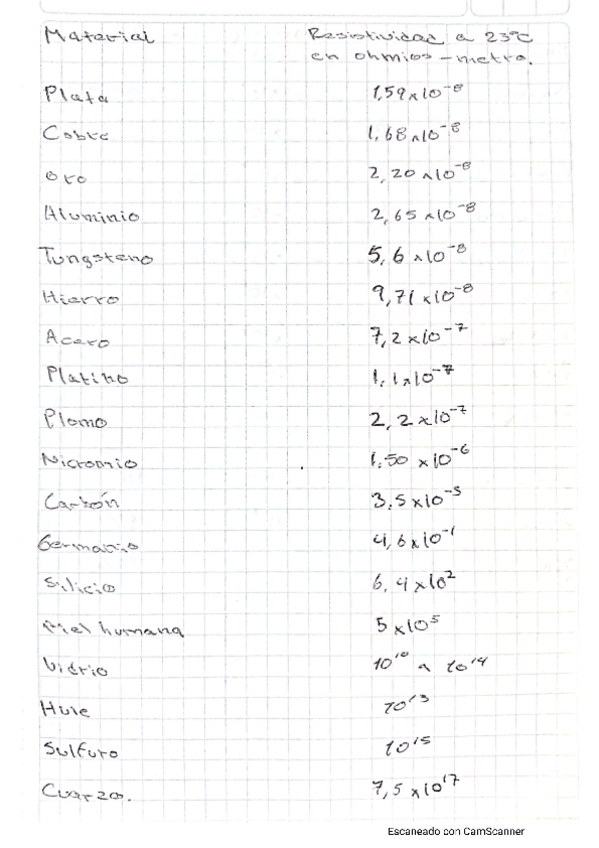 Material Resistividad a 23°C
en ohmios-metro.
Plata 1,59x10⁻⁸
Cobre 1,68x10⁻⁸
Oro 2,20x10⁻⁸
Aluminio 2,65x10⁻⁸
Tungsteno 5,6x10⁻⁸
Hierro 9,71x10⁻⁸
Acero 7,2x10⁻⁷
Platino 1,1x10⁻⁷
Plomo 2,2x10⁻⁷
Nicromio 1,50x10⁻⁶
Carbón 3,5x10⁻⁵
Germanio 4,6x10⁻¹
Silicio 6,4x10²
Piel humana 5x10⁵
Vidrio 10¹⁰ a 10¹⁴
Hule 10¹³
Sulfuro 10¹⁵
Cuarzo. 7,5x10¹⁷
Escaneado con CamScanner